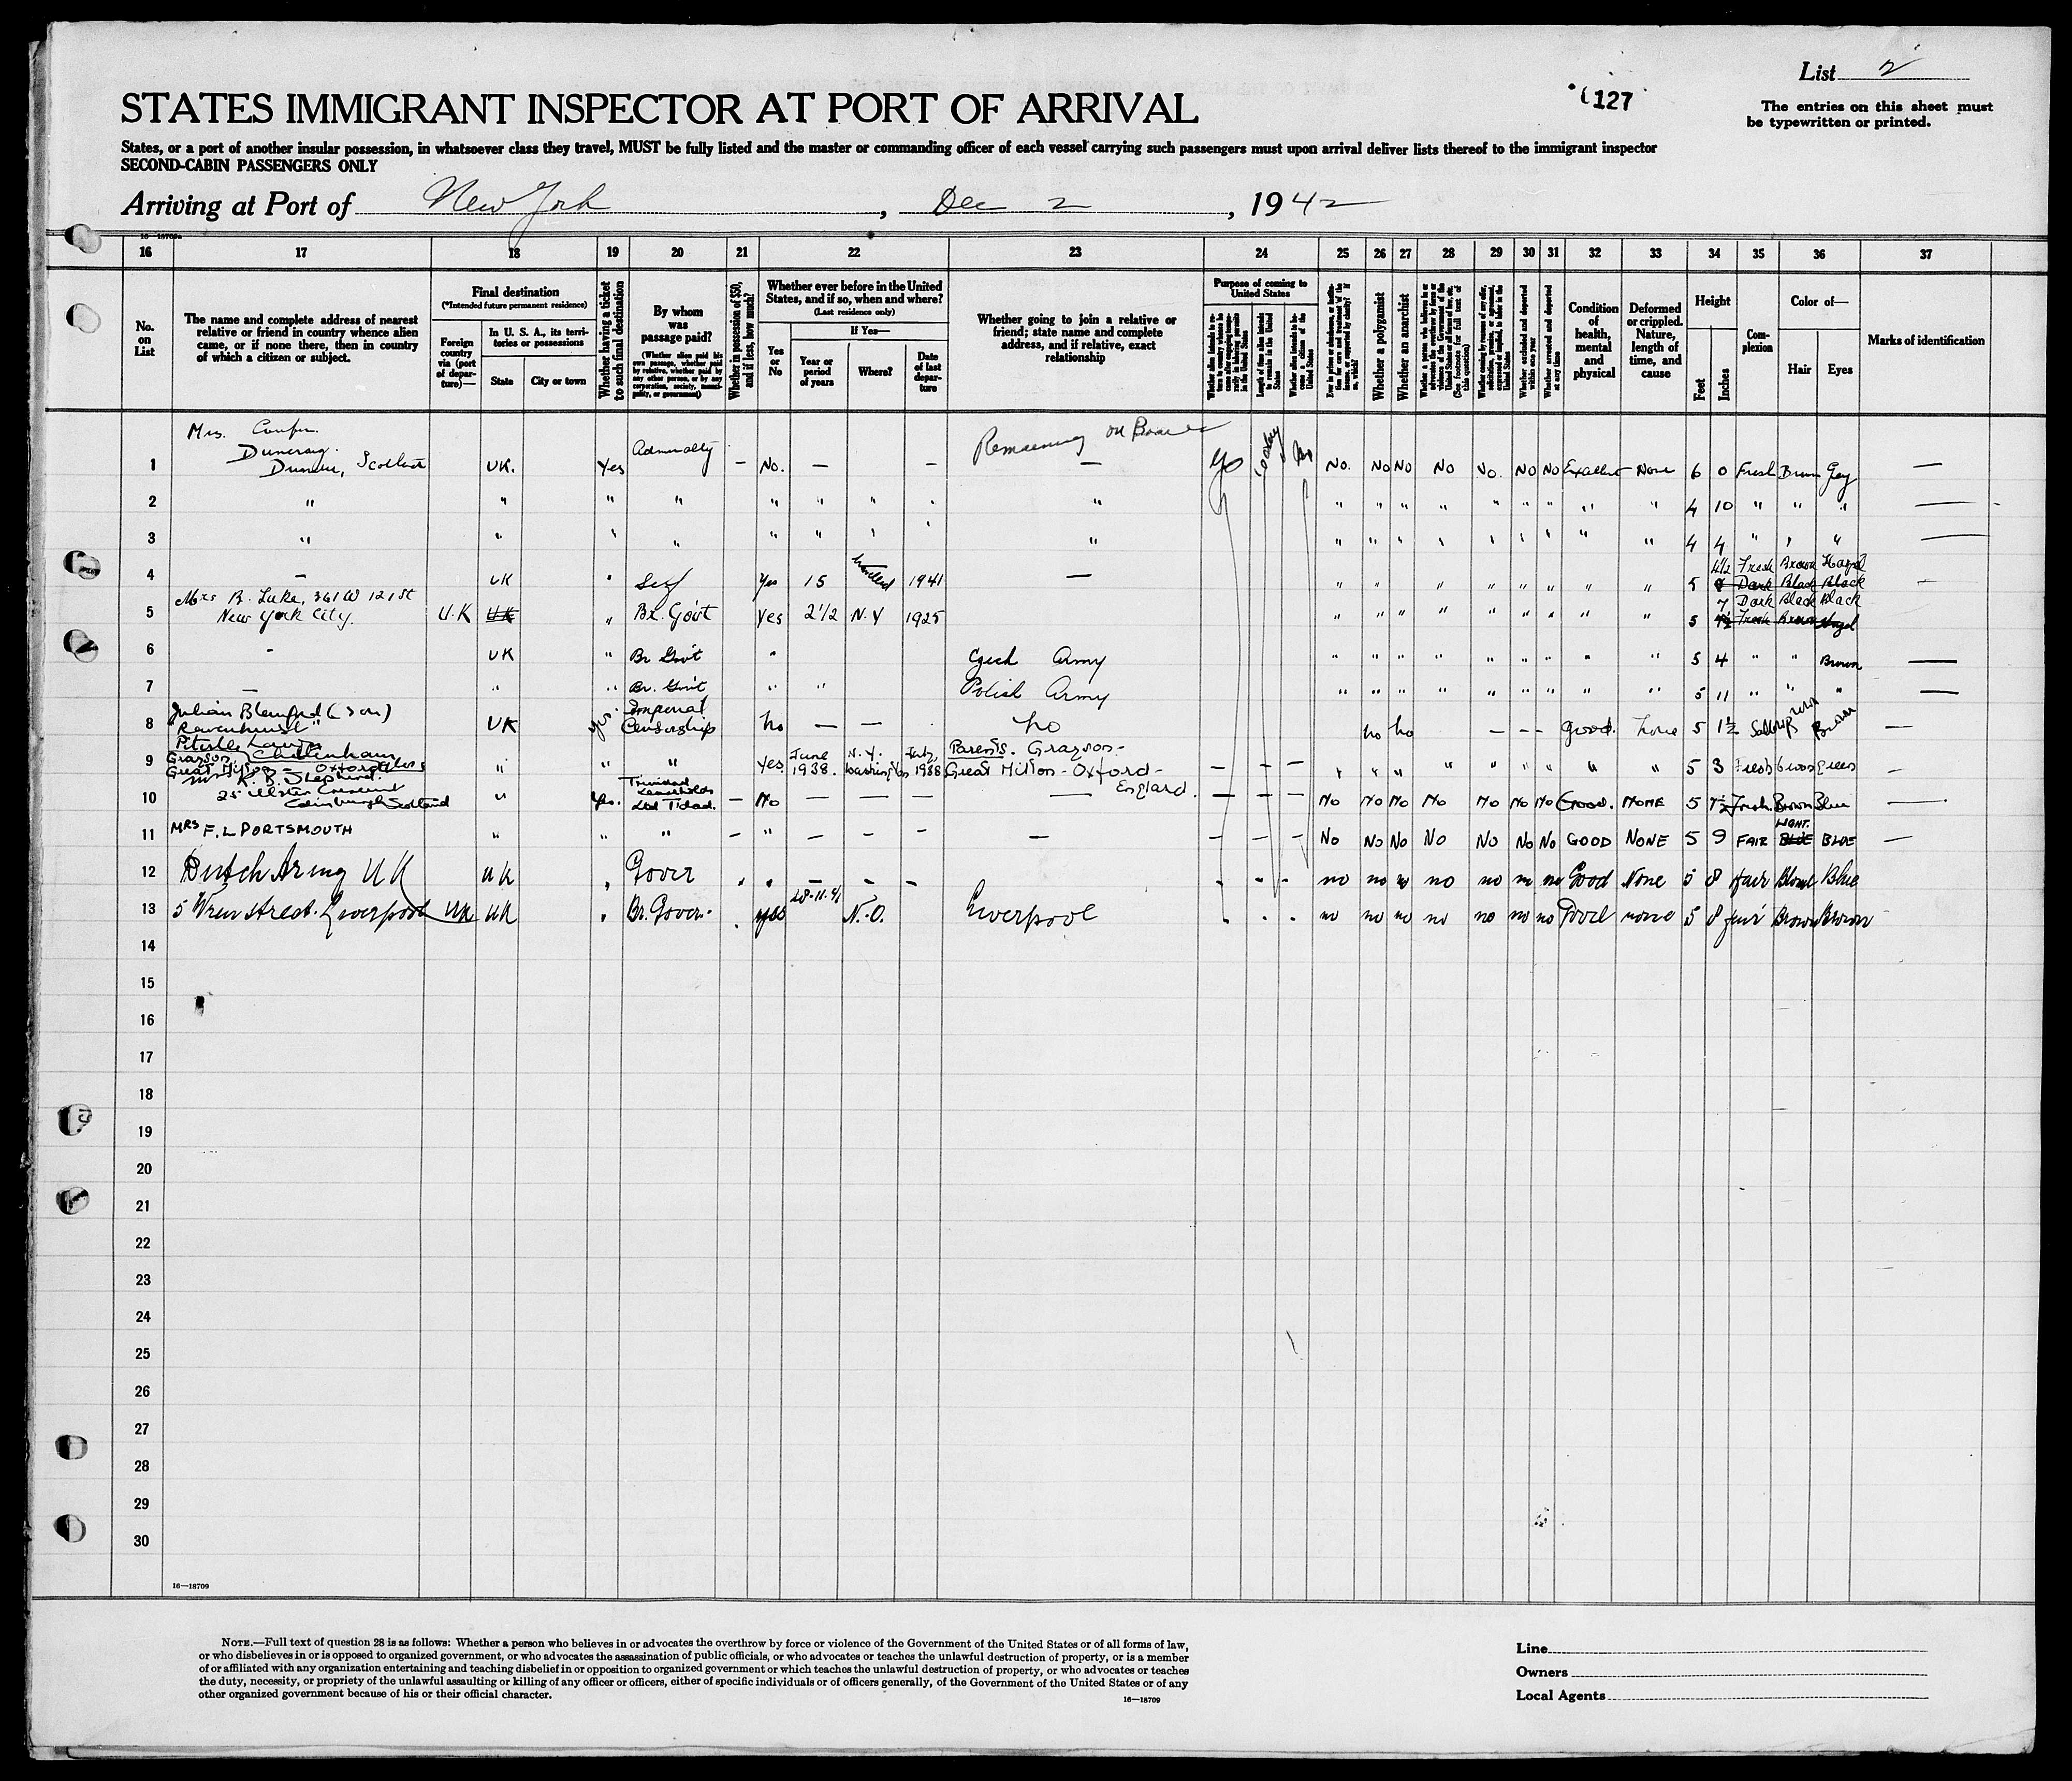 List 2
127
The entries on this sheet must
be typewritten or printed.
STATES IMMIGRANT INSPECTOR AT PORT OF ARRIVAL
States, or a port of another insular possession, in whatsoever class they travel, MUST be fully listed and the master or commanding officer of each vessel carrying such passengers must upon arrival deliver lists thereof to the immigrant inspector
SECOND-CABIN PASSENGERS ONLY
Arriving at Port of New York, Dec 2, 1942
16 17 18 19 20 21 22 23 24 25 26 27 28 29 30 31 32 33 34 35 36 37
No. on List
The name and complete address of nearest relative or friend in country whence alien came, or if none there, then in country of which a citizen or subject.
Final destination
(*Intended future permanent residence)
Foreign country via (port of departure)—
In U. S. A., its territories or possessions
State
City or town
Whether having a ticket to such final destination
By whom was passage paid?
(Whether alien paid his own passage, whether paid by relative, whether paid by any other person, or by any corporation, society, municipality, or government)
Whether in possession of $50, and if less, how much?
Whether ever before in the United States, and if so, when and where?
(Last residence only)
Yes or No
If Yes—
Year or period of years
Where?
Date of last departure
Whether going to join a relative or friend; state name and complete address, and if relative, exact relationship
Purpose of coming to United States
Length of time alien intends to remain in the United States
Whether alien intends to become a citizen of the United States
Whether a polygamist
Whether an anarchist
Whether excluded and deported within one year
Whether arrested and deported at any time
Condition of health, mental and physical
Deformed or crippled. Nature, length of time, and cause
Height
Feet
Inches
Complexion
Color of—
Hair
Eyes
Marks of identification
1 Mrs. Dundee, Scotland UK. Yes Admiralty — No. — — Remaining on Board — No. No No No No. No No Excellent None 6 0 Fresh Brown Grey —
2 " " " " " " " " " " " " " " " " " 4 10 " " " —
3 " " " " " " " " " " " " " " " 4 4 " " " —
4 — UK " Self Yes 15 1941 — " " " " " " " " " 5 4½ Fresh Brown Hazel
Dark Black Black
5 Mrs R. Luke, 361 W 121 St
New York City. U.K UK " Br. Gov't Yes 2½ N.Y 1925 " " " " " " " " " 5 7 Dark Black Black
Fresh Brown Hazel
6 - UK " Br Gov't " Czech Army " " " " " " " " " 5 4 " " Brown —
7 — " " Br. Gov't " " Polish Army " " " " " " " " " 5 11 " " " —
8 Julian Blamford (son)
Ravenhurst
UK yes Imperial
Censorship no — — no no no — - - good. none 5 1½ Brown —
9 Grayson Cheltenham
Great Milton — Oxford
" " " Yes. June
1938. N.Y. July
1938 Parents. Grayson-
Great Milton - Oxford-
England. — — — " " " " " " " " " 5 3 Fresh Green —
10 K. B. Shepherd.
25 Ulster Crescent
Edinburgh Scotland " Yes. Trinidad
Leaseholds
Ltd — No — — — — — — — No No No No No No No Good. NONE 5 7½ Fresh. Brown Blue —
11 MRS F. L PORTSMOUTH " " " — " — — - — — — — No No No No No No No GOOD NONE 5 9 FAIR LIGHT. BLUE BLUE —
12 Dutch Army UK UK " Gover . . - - - . - - no no no no no no no Good None 5 8 fair Blond Blue
13 5 Wren Street. Liverpool UK UK " Br. Gover. . yes 28-11-41 N.O. Liverpool . . . no no no no no no no Good none 5 8 fair Brown Brown
14
15
16
17
18
19
20
21
22
23
24
25
26
27
28
29
30
16—18709
NOTE.—Full text of question 28 is as follows: Whether a person who believes in or advocates the overthrow by force or violence of the Government of the United States or of all forms of law,
or who disbelieves in or is opposed to organized government, or who advocates the assassination of public officials, or who advocates or teaches the unlawful destruction of property, or is a member
of or affiliated with any organization entertaining and teaching disbelief in or opposition to organized government or which teaches the unlawful destruction of property, or who advocates or teaches
the duty, necessity, or propriety of the unlawful assaulting or killing of any officer or officers, either of specific individuals or of officers generally, of the Government of the United States or of any
other organized government because of his or their official character.
16—18709
Line
Owners
Local Agents